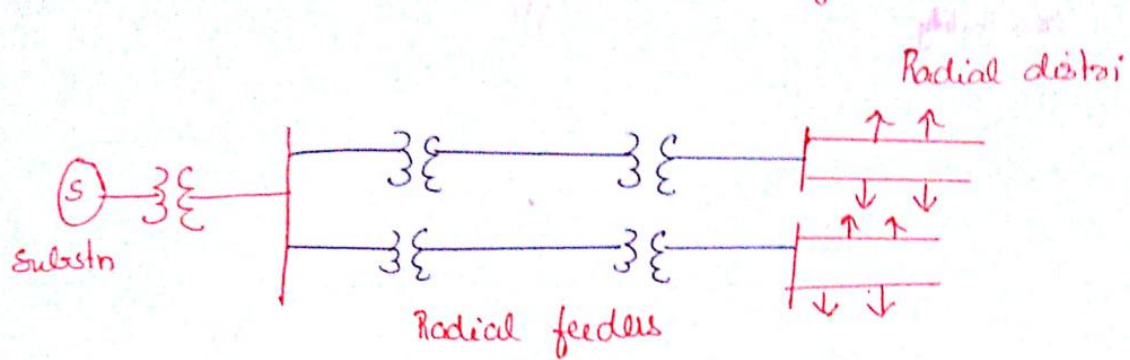 Radial distri
S
Substn
Radial feeders